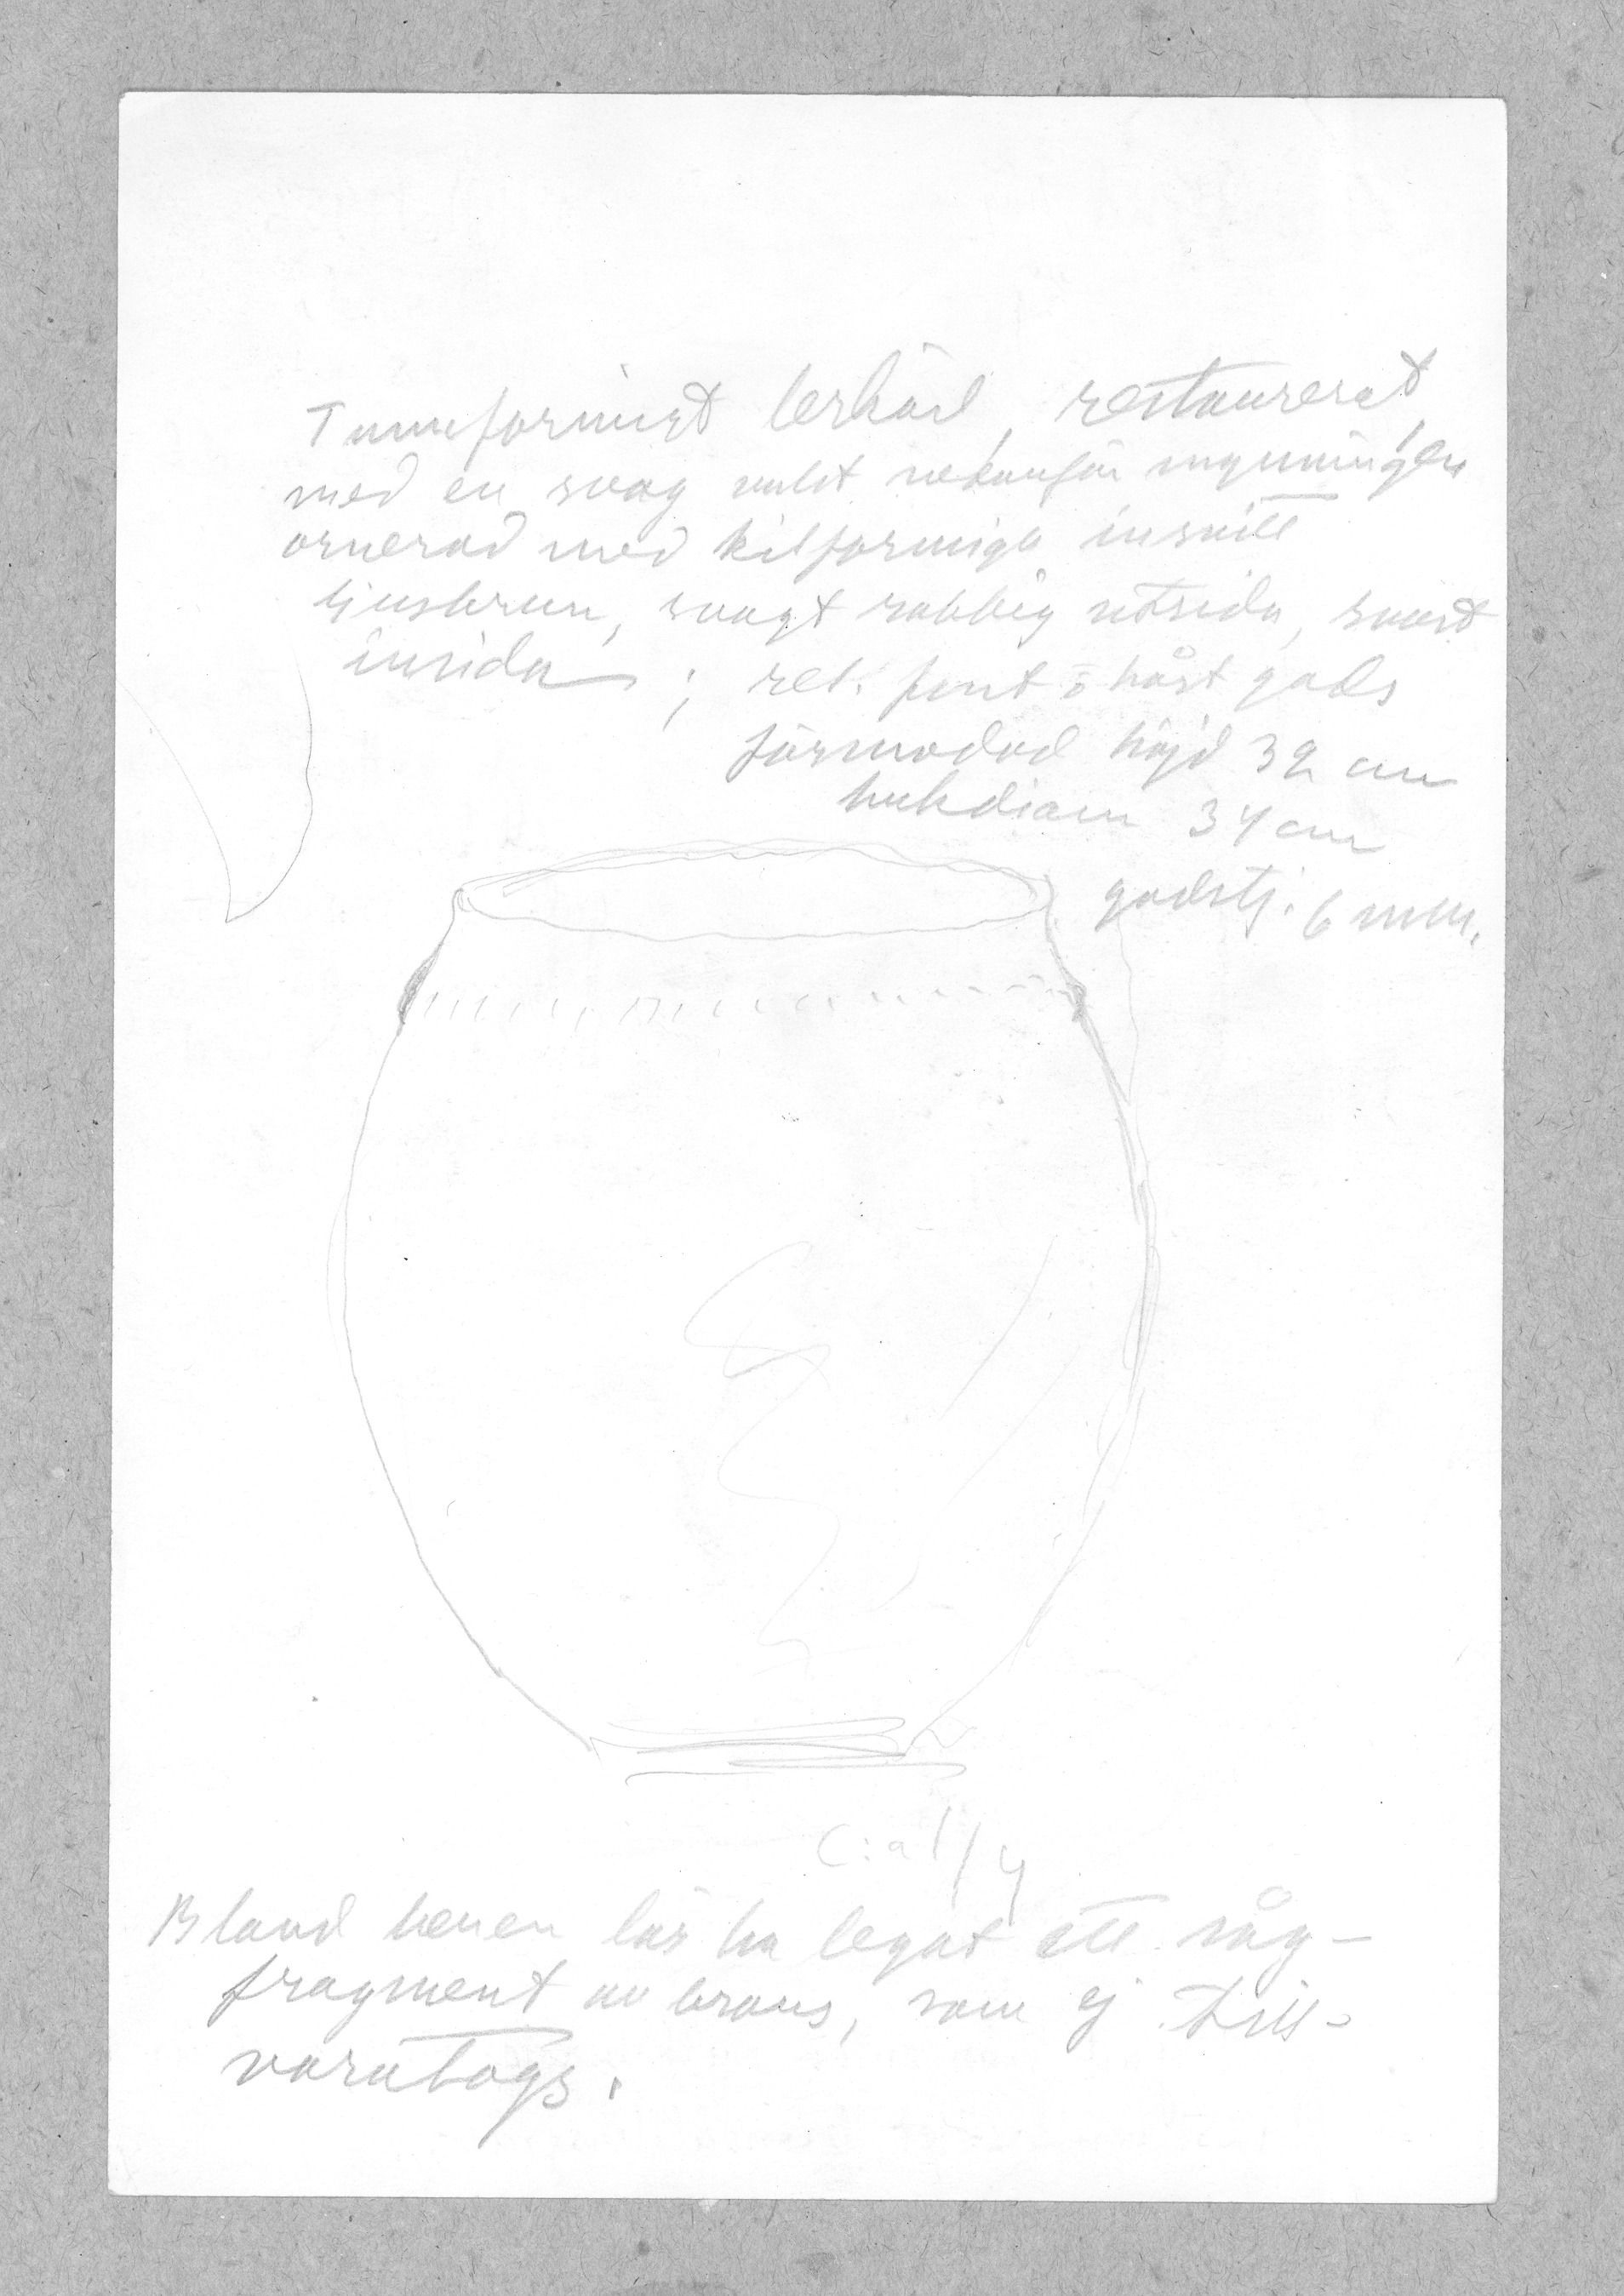 Tunnformigt lerkärl, restaurerat,
med en svag vulst nedanför mynningen
ornerad med kilformiga insnitt
ljusbrun, svagt rabbig utsida, svart
insida; rel. fint o hårt gods
förmodad höjd 39 cm
bukdiam 34 cm
godstj. 6 mm.
C:a 1/4
Bland benen lär ha legat ett såg-
fragment av brons, som ej till-
varatogs.